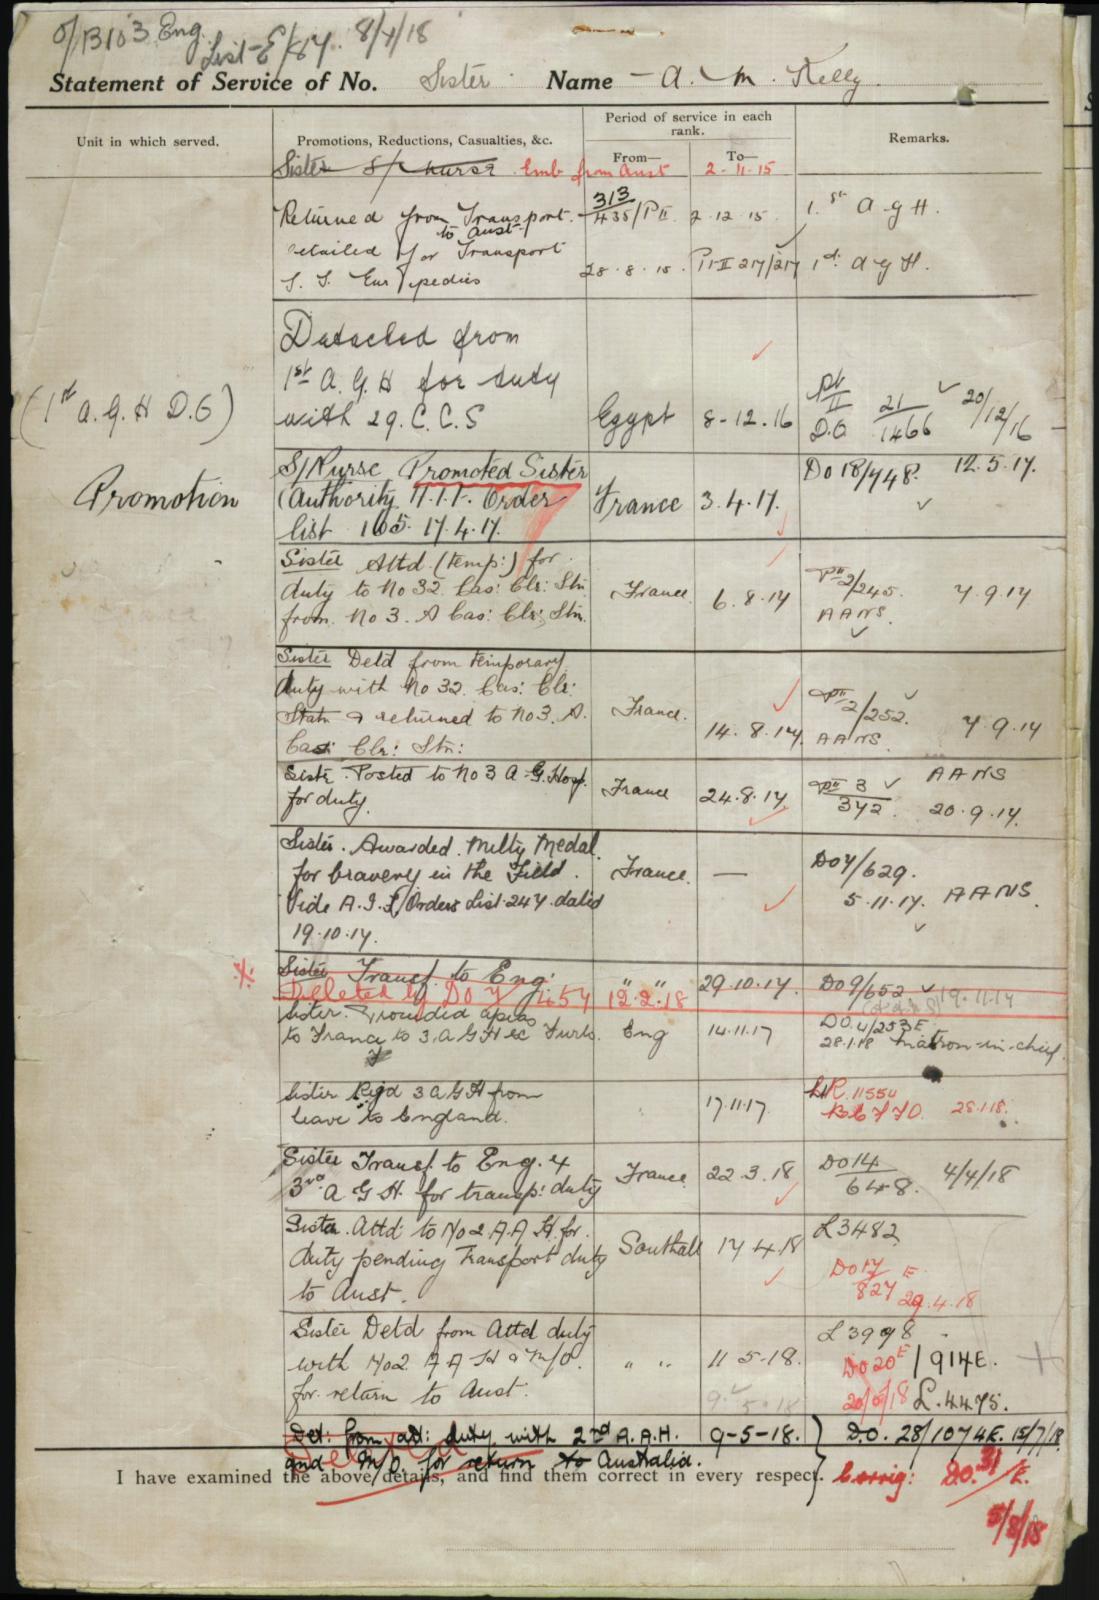 O/B103 Eng.
List-E/87. 8/4/18
Statement of Service of No. Sister Name - A. M. Kelly.
Unit in which served.
Promotions, Reductions, Casualties, &c.
Period of service in each rank.
From—
To—
Remarks.
Sister S/Nurse Emb from Aust 2-11-15
Returned from Transport 313/435/Pt II 2.12.15. 1.st A.G.H.
to Aust.
detailed for Transport
S.S. Euripedies 28.8.15. Pt II 217/217 1st A.G.H.
(1st A.G.H D.O)
Detached from
1st A.G.H for duty
with 29.C.C.S Egypt 8-12.16 Pt II D.O. 21/1466 20/12/16
Promotion
S/Nurse Promoted Sister
(Authority A.I.F. Order
list 165. 17.4.17. France 3.4.17. DO 18/748. 12.5.17.
Sister Attd (temp:) for
duty to No 32. Cas: Clr: Stn
from No 3. A Cas: Clr: Stn. France 6.8.17 Pt II 2/245. AANS. 7.9.17
Sister Detd from temporary
duty with No 32. Cas: Clr:
Statn & returned to No 3. A.
Cas: Clr: Stn: France. 14.8.17. Pt II 2/252. AANS. 7.9.17
Sister. Posted to No 3 A.G.Hosp.
for duty. France 24.8.17. Pt II 3/372. AANS 20.9.17.
Sister. Awarded. Milty Medal.
for bravery in the Field.
Vide A.I.F/Orders List 247. dated
19.10.17. France. — DO 7/629. 5.11.17. AANS.
Sister Transf. to Eng. " " 29.10.17. DO 9/652 19.11.17
Deleted by DO 7/454 12.2.18
Sister.
to France to 3.A.G.H Furlo. Eng 14.11.17 DO.4/253E 28.1.18 Matron-in-chief.
Sister Rejd 3 AGH from
leave to England. 17.11.17. 28.1.18.
Sister Transf. to Eng. &
3rd A G H. for transp: duty France 22.3.18 DO14/648. 4/4/18
Sister Attd to No 2 A A H. for
duty pending Transport duty
to Aust. Southall 17 4.18 L3482 DO 17/827 E 29.4.18
Sister Detd from Attd duty
with No2 A A H & M/O.
for return to Aust. " " 11-5-18. L3998 DO 20E/914E. 20/5/18 L.4475.
9.5.18
Det: from att: duty with 2nd A.A.H. 9-5-18. D.O. 28/1074E. 15/7/18
and M/O. for return to Australia.
I have examined the above details, and find them correct in every respect. Corrig: DO.31/E.
5/8/18